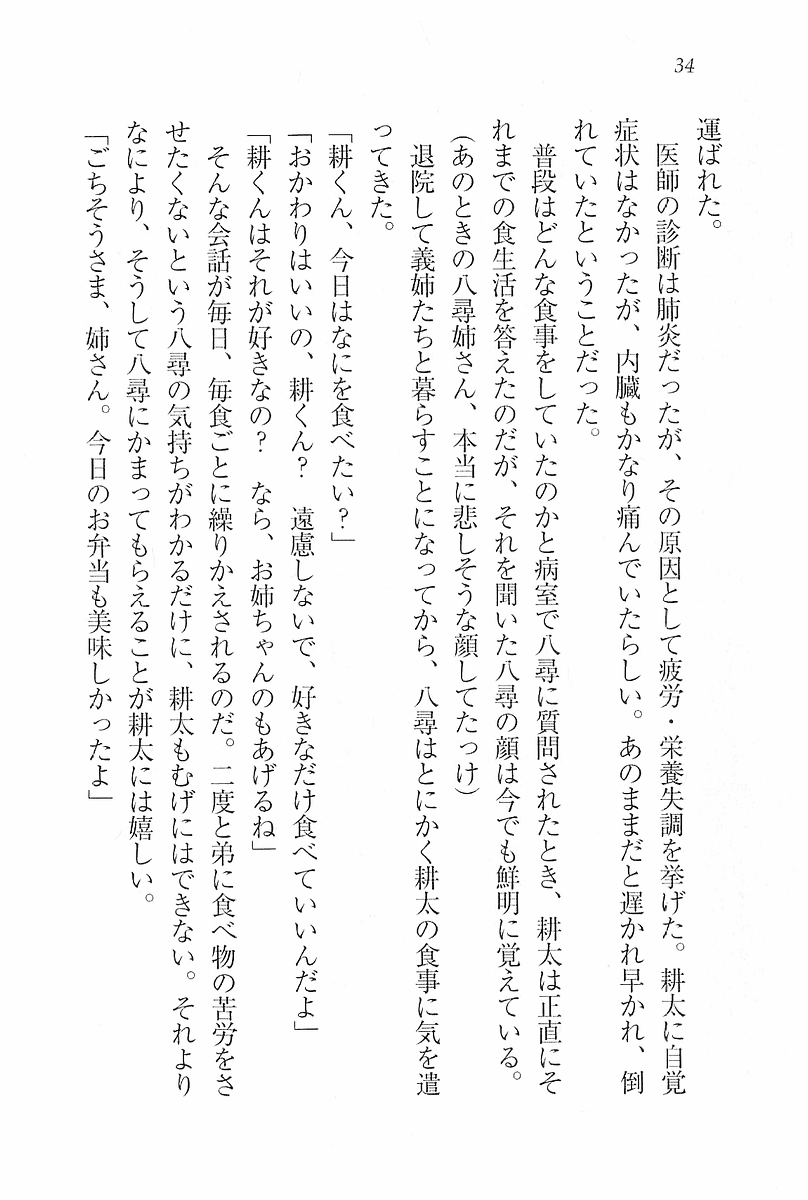 34
運ばれた。
　医師の診断は肺炎だったが、その原因として疲労・栄養失調を挙げた。耕太に自覚
症状はなかったが、内臓もかなり痛んでいたらしい。あのままだと遅かれ早かれ、倒
れていたということだった。
　普段はどんな食事をしていたのかと病室で八尋に質問されたとき、耕太は正直にそ
れまでの食生活を答えたのだが、それを聞いた八尋の顔は今でも鮮明に覚えている。
（あのときの八尋姉さん、本当に悲しそうな顔してたっけ）
　退院して義姉たちと暮らすことになってから、八尋はとにかく耕太の食事に気を遣
ってきた。
「耕くん、今日はなにを食べたい？」
「おかわりはいいの、耕くん？　遠慮しないで、好きなだけ食べていいんだよ」
「耕くんはそれが好きなの？　なら、お姉ちゃんのもあげるね」
　そんな会話が毎日、毎食ごとに繰りかえされるのだ。二度と弟に食べ物の苦労をさ
せたくないという八尋の気持ちがわかるだけに、耕太もむげにはできない。それより
なにより、そうして八尋にかまってもらえることが耕太には嬉しい。
「ごちそうさま、姉さん。今日のお弁当も美味しかったよ」